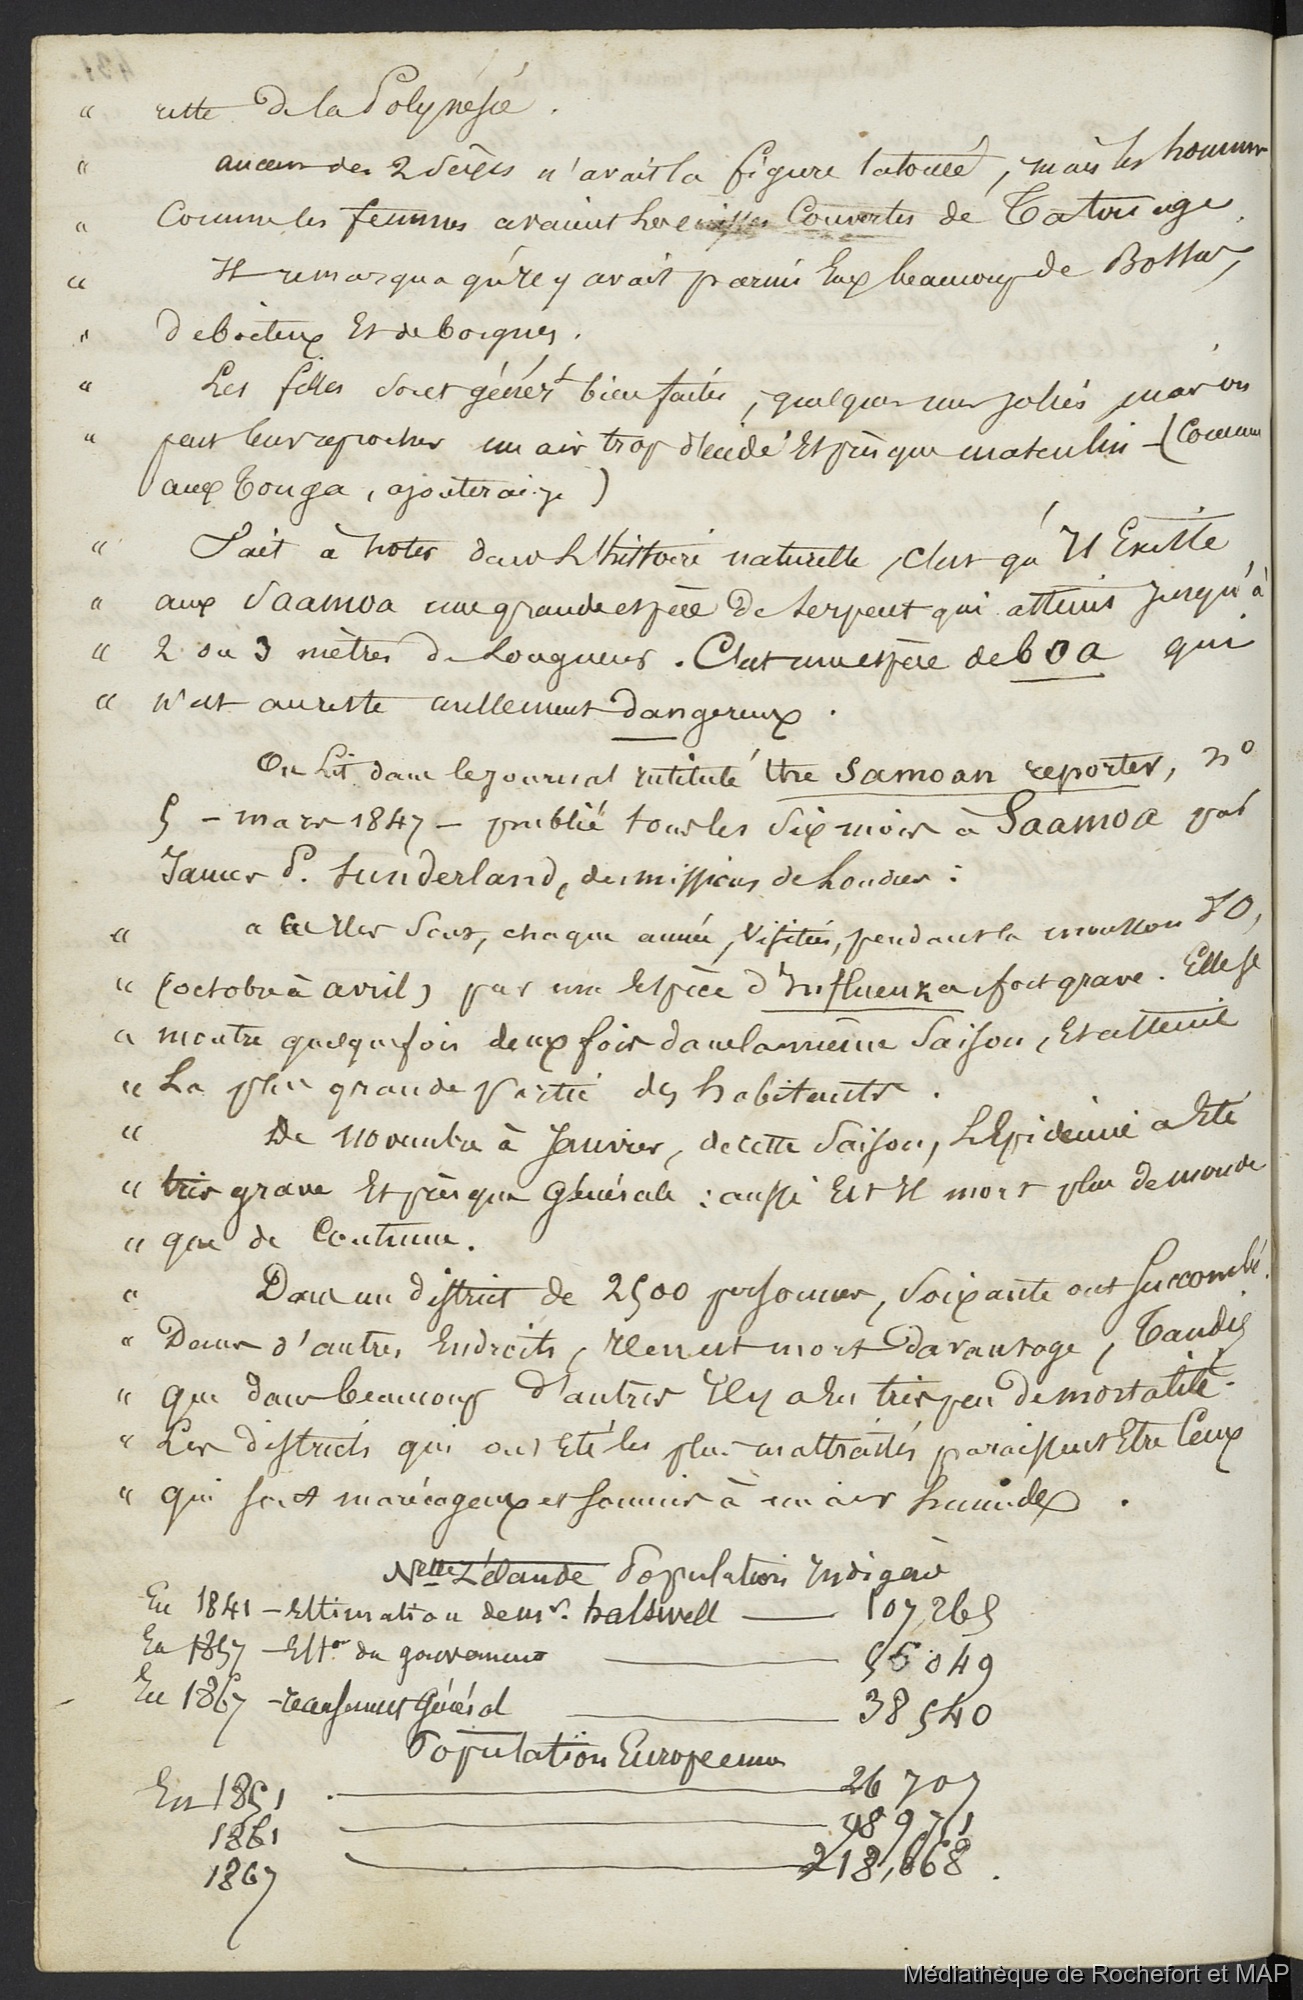 " rette De la Polynésie .
" aucun des 2 sexes n'avait la figure tatouée, mais les hommes
" Comme les femmes avaient les cuisses Couvertes de Tatouage.
" Il remarqua qu'il y avait parmi Eux beaucoup de Bossus,
" De boiteux Et de borgnes.
" Les filles sont génért bien faites, quelques unes jolies mais on
" peut leur reprocher un air trop décidé Et presque masculin - (Comme
aux Tonga, ajouterai-je)
" Fait à noter dans L'histoire naturelle, c'est qu'Il Existe
" aux Saamoa une grande espèce De Serpent qui atteint jusqu'à
" 2 ou 3 mètres de Longueur. C'est une espèce de boa qui
" n'est au reste nullement dangereux.
On Lit dans le journal intitulé the Samoan reporter, no
5 - mars 1847 - publié tous les Six mois à Saamoa par
James P. Sunderland, des missions de Londres :
" a Ces Iles sont, chaque année, Visitées, pendant la mousson SO,
" (octobre à avril) par une Espèce d'Influenza fort grave. Elle se
" montre quelquefois deux fois dans la même Saison, Et atteint
" La plus grande Partie des habitants.
" De novembre à Janvier, de cette Saison, L'Epidémie a Eté
" très grave Et presque Générale : aussi Est Il mort plus De monde
" que de Coutume.
" Dans un district de 2500 personnes, Soixante ont Succombé.
" Dans d'autres Endroits, Il en est mort Davantage, Tandis
" que dans beaucoup d'autres Il y a Eu très peu De mortalité.
" Les districts qui ont Eté les plus maltraités paraissent Etre Ceux
" qui sont marécageux et soumis à un air humide .
Nelle Zélande Population Indigène
En 1841 - Estimation de mr. halswell — 107,265
En 1857 - Eston du gouvernement — 56 049
En 1867 - recensement Général — 38 540
Population Européenne
En 1851 . — 26 707
1861 — 98 971
1867 — 218,668 .
Médiathèque de Rochefort et MAP